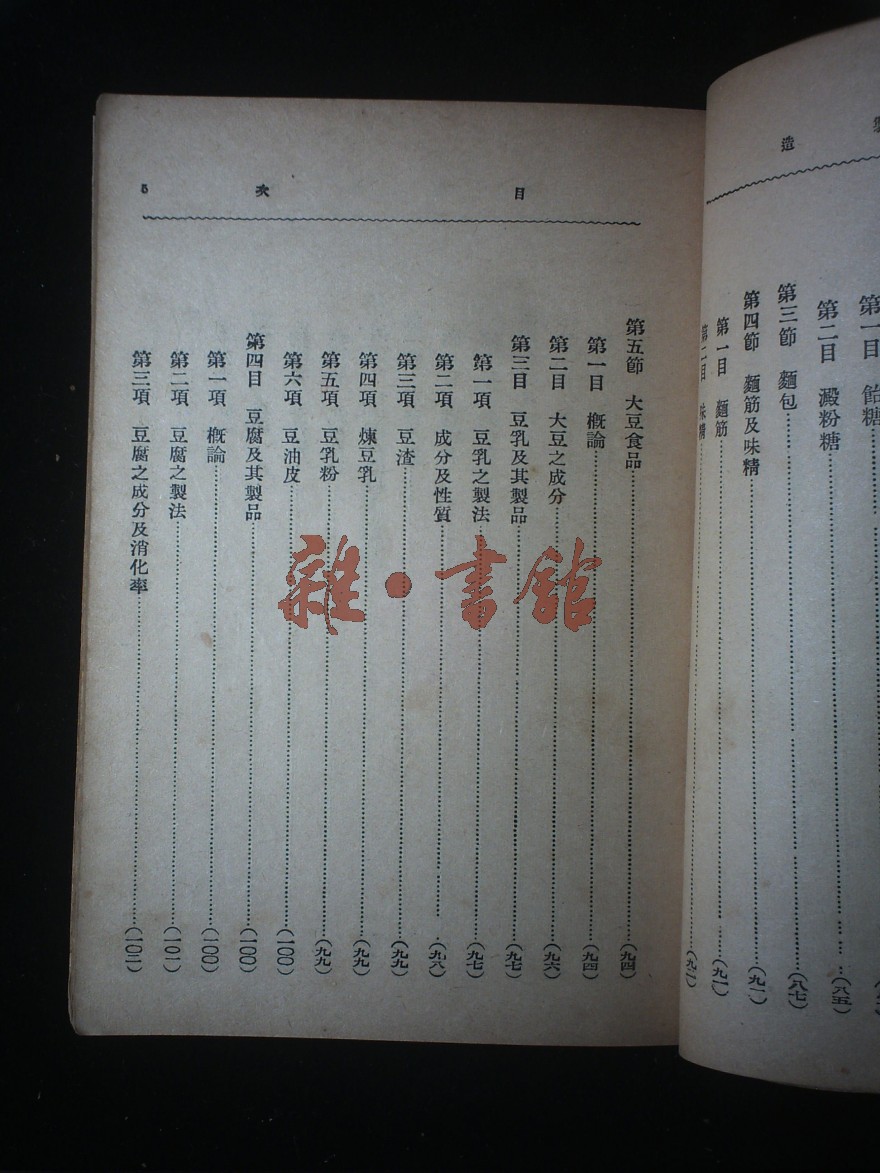 造
第一目　飴糖
第二目　澱粉糖……(八五)
第三節　麵包……(八七)
第四節　麵筋及味精……(九一)
第一目　麵筋……(九一)
第二目　味精……(九一)
目次　5
第五節　大豆食品……(九四)
第一目　概論……(九四)
第二目　大豆之成分……(九六)
第三目　豆乳及其製品……(九七)
第一項　豆乳之製法……(九七)
第二項　成分及性質……(九八)
第三項　豆渣……(九九)
第四項　煉豆乳……(九九)
第五項　豆乳粉……(九九)
第六項　豆油皮……(一〇〇)
第四目　豆腐及其製品……(一〇〇)
第一項　概論……(一〇〇)
第二項　豆腐之製法……(一〇一)
第三項　豆腐之成分及消化率……(一〇二)
雜·書館